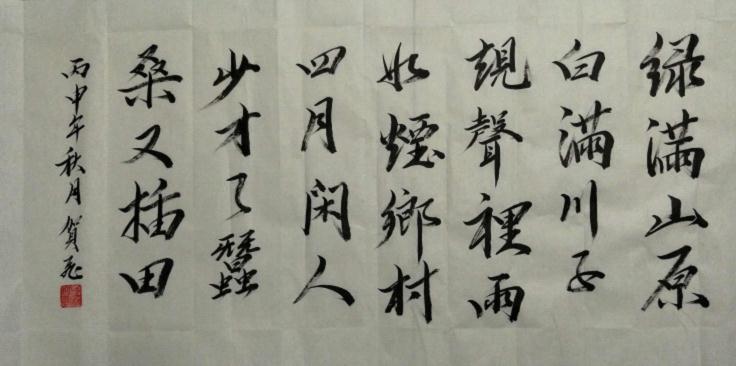 绿滿山原
白滿川子
規聲裡雨
如煙鄉村
四月閑人
少才了蠶
桑又插田
丙申年秋月賀